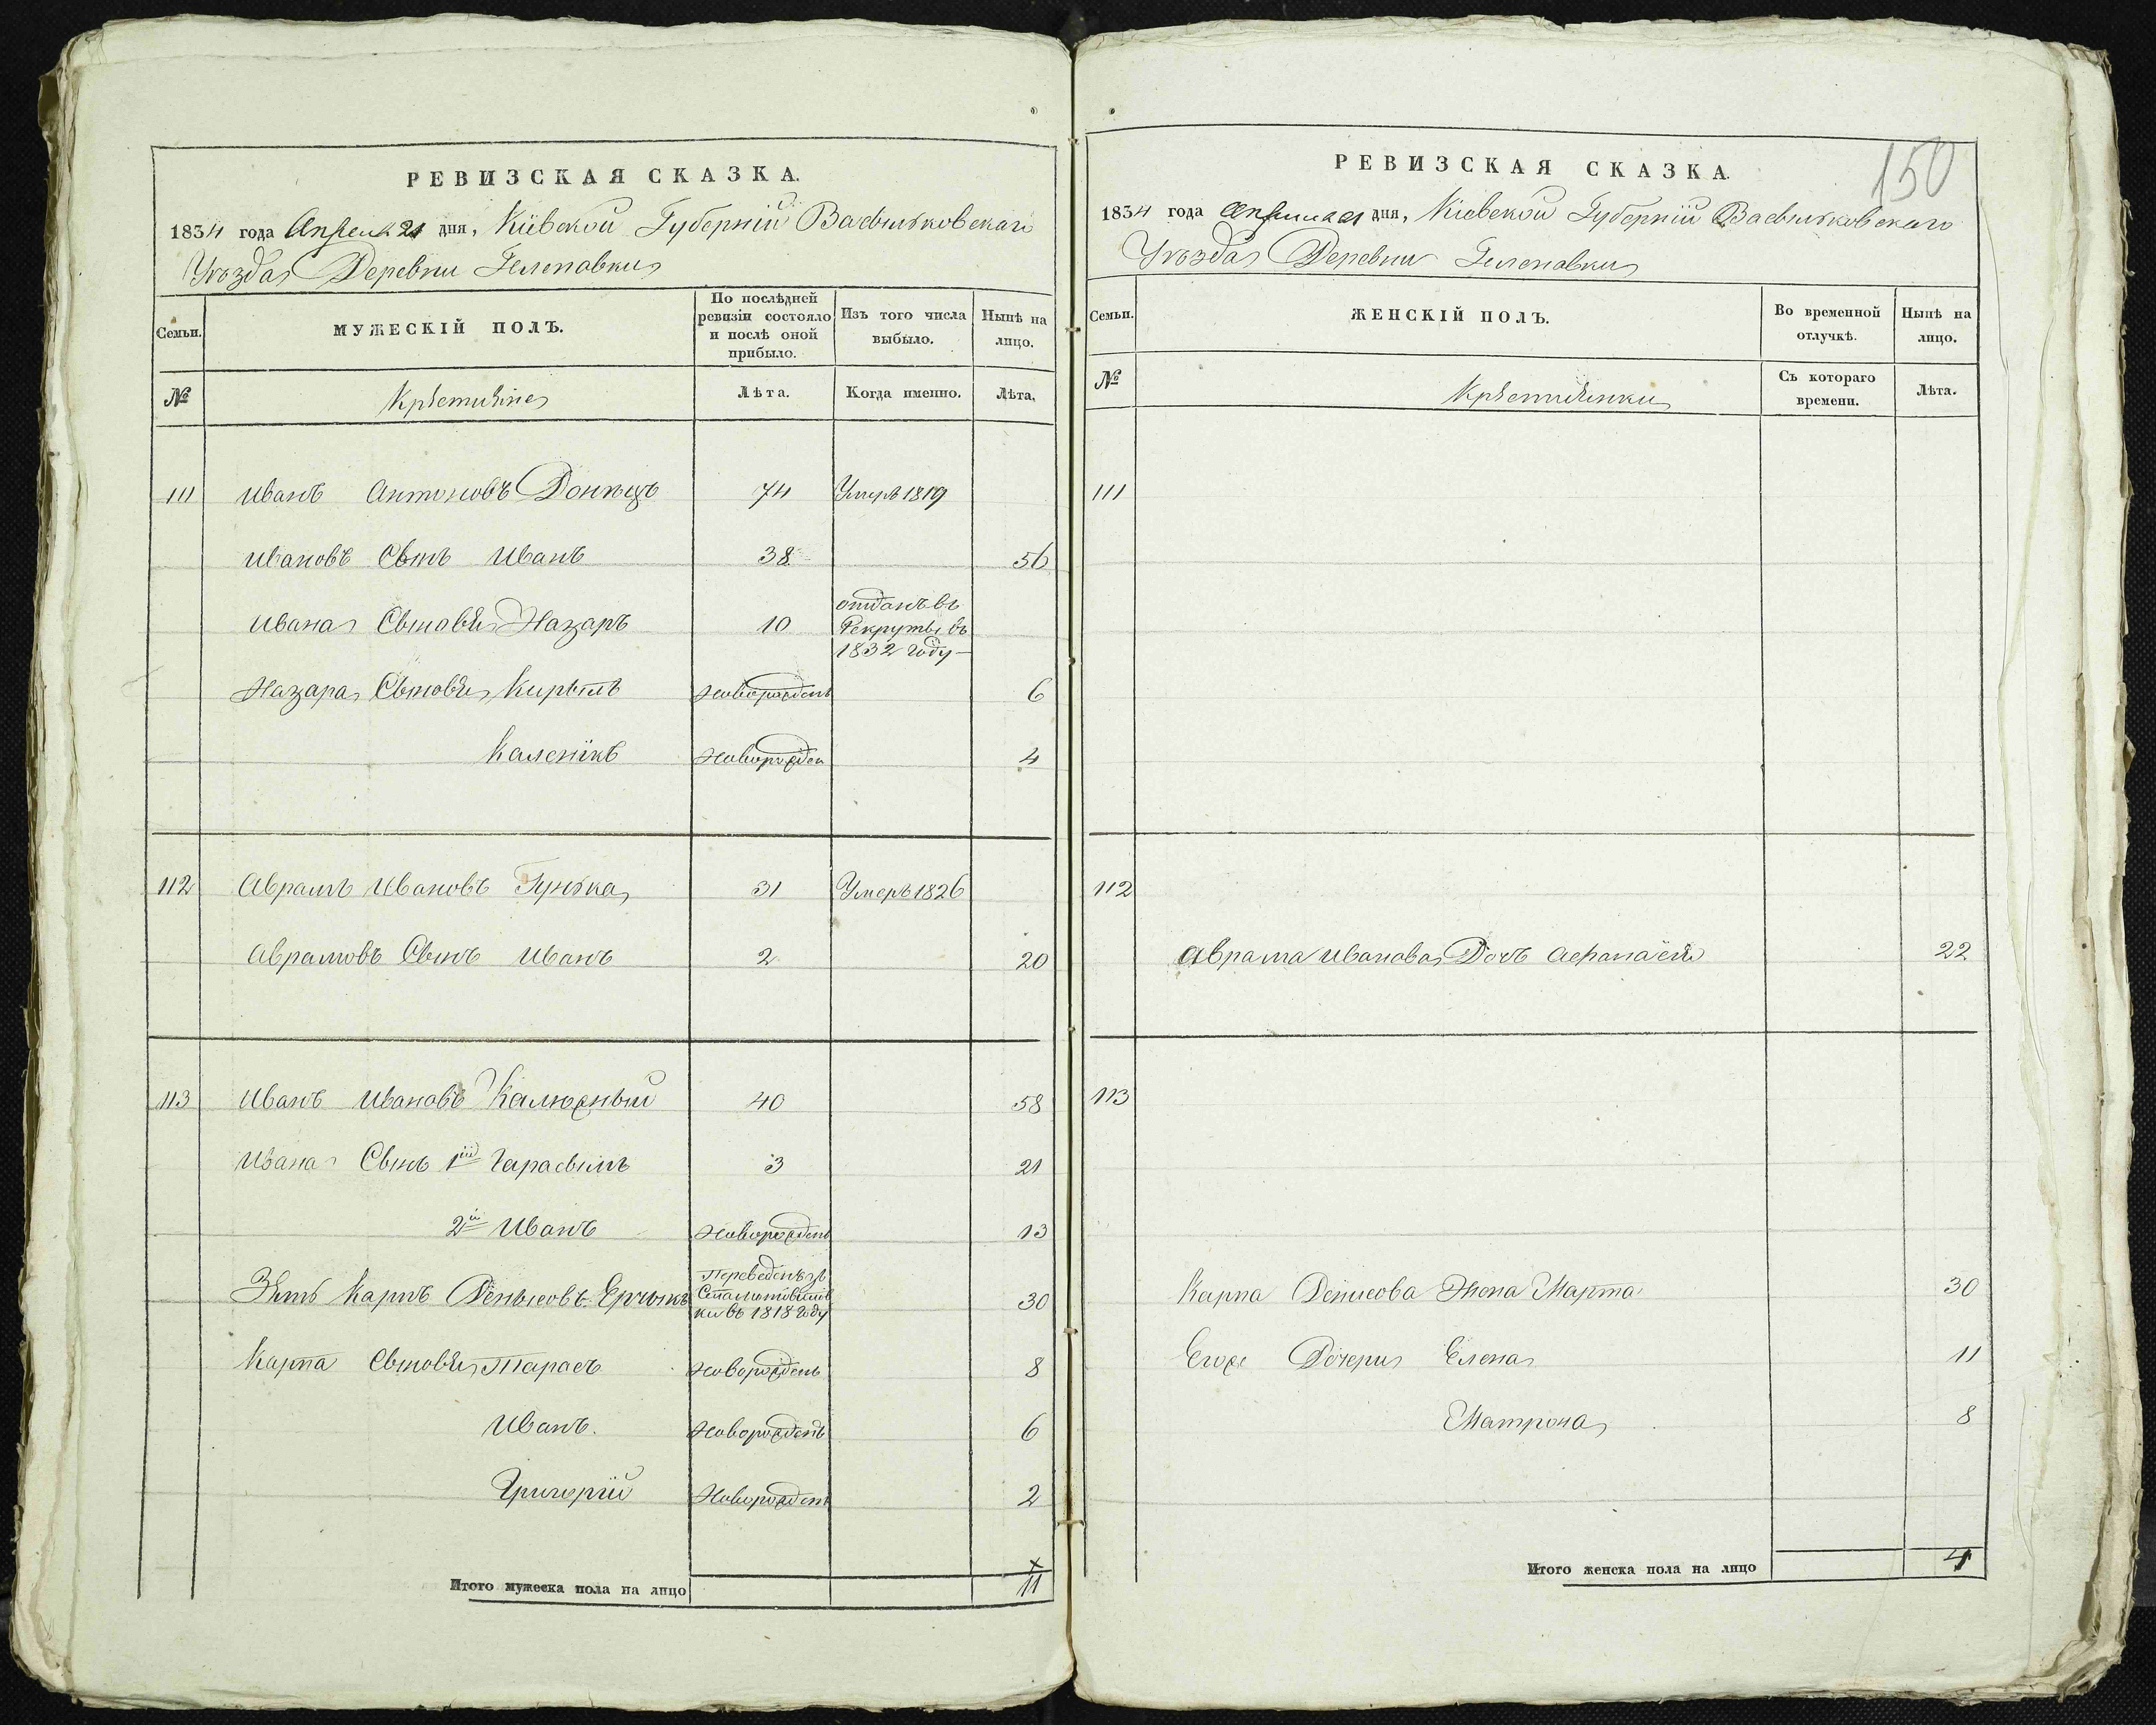 РЕВИЗСКАЯ СКАЗКА.
1834 года Апреля 21 дня, Кіевской Губерніи Васильковскаго
Уѣзда Деревни
Семьи.
МУЖЕСКІЙ ПОЛЪ.
По послѣдней ревизіи состояло и послѣ оной прибыло.
Изъ того числа выбыло.
Нынѣ на лицо.
№
Крѣстьяне
Лѣта.
Когда именно.
Лѣта.
111 Иванъ Антоновъ Донецъ 74 Умеръ 1819
Ивановъ Сынъ Иванъ 38 56
Ивана Сыновья Назаръ 10 отданъ въ Рекруты въ 1832 году
Назара Сыновья Кирылъ Новорожденъ 6
Каленикъ Новорожден 4
112 Аврамъ Ивановъ Гунька 31 Умеръ 1826
Аврамовъ Сынъ Иванъ 2 20
113 Иванъ Ивановъ Калюжный 40 58
Ивана Сынъ 1й Гарасымъ 3 21
2й Иванъ Новорожденъ 13
Зять Карпъ Денысовъ Переведенъ въ 1818 году 30
Карпа Сыновья Тарасъ Новорожденъ 8
Иванъ. Новорожденъ 6
Григорій Новорожденъ 2
Итого мужеска пола на лицо 11
150
РЕВИЗСКАЯ СКАЗКА.
1834 года Апреля 21 дня, Кіевской Губерніи Васильковскаго
Уѣзда Деревни
Семьи.
ЖЕНСКІЙ ПОЛЪ.
Во временной отлучкѣ.
Нынѣ на лицо.
№
Крѣстьянки
Съ котораго времени.
Лѣта.
111
112
Аврама Иванова Дочь Афанасія 22
113
Карпа Денисова Жена Марта 30
Егоже Дочери Елена 11
Матрона 8
Итого женска пола на лицо 4